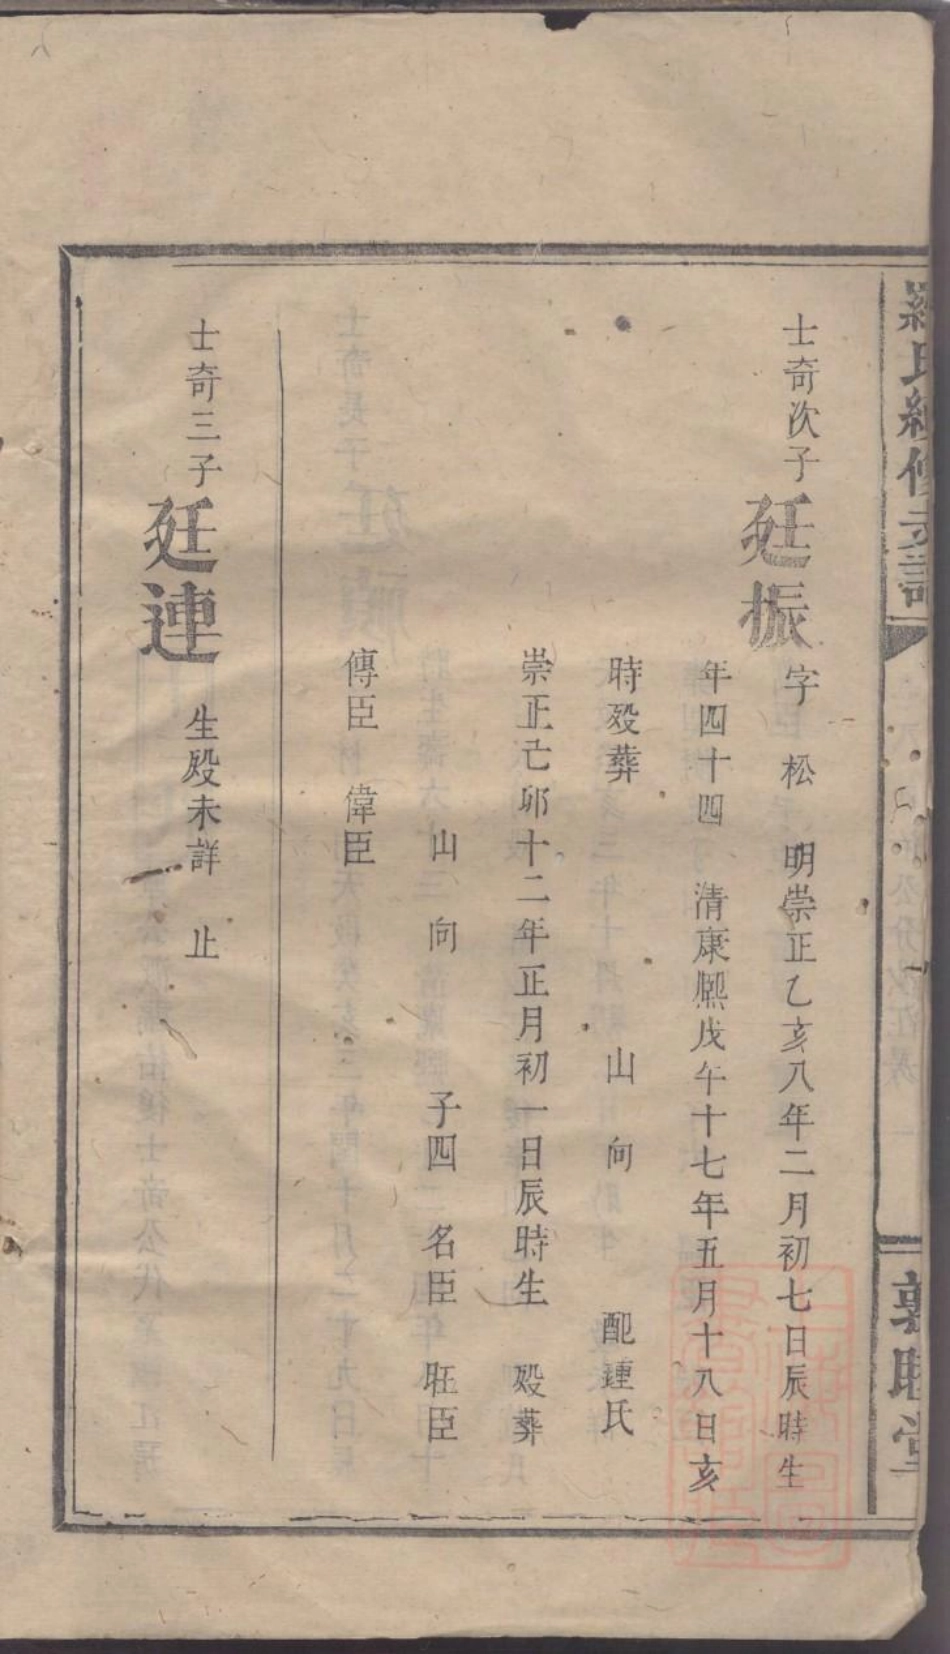 羅氏續修支譜
敦睦堂
士奇次子
廷振
字 松 明崇正乙亥八年二月初七日辰時生
年四十四 清康熙戊午十七年五月十八日亥
時殁葬 山 向 配鍾氏
崇正己邜十二年正月初一日辰時生 殁葬
山 向 子四 名臣 旺臣
傳臣 偉臣
士奇三子
廷連
生殁未詳 止